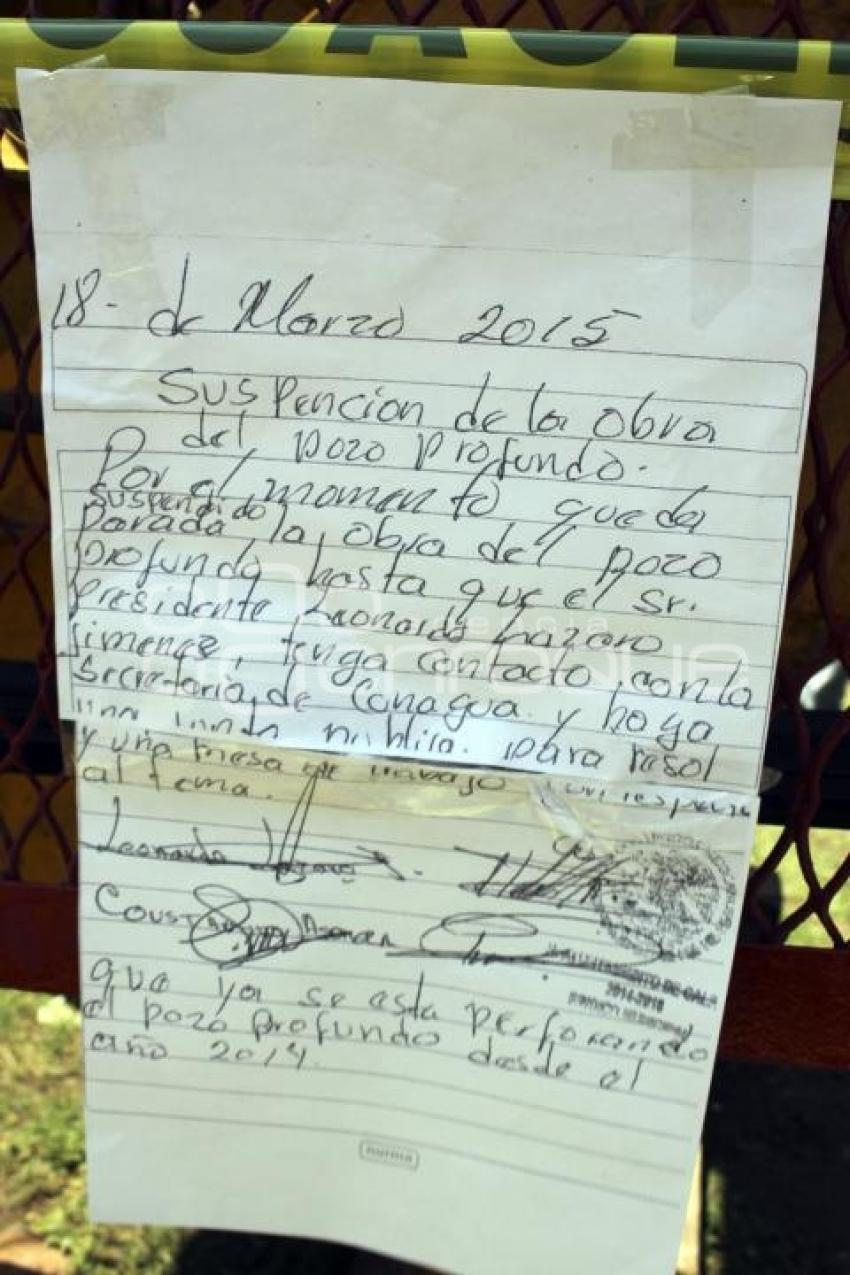 18- de Marzo 2015
Suspencion de la obra
del pozo profundo.
Por el momento queda
suspendido
parada la obra del pozo
profundo hasta que el Sr.
Presidente Leonardo Lazaro
Jimenez, tenga contacto con la
Secretaria de Conagua y haga
una junta publica. para resol
y una mesa de trabajo con respecto
al tema.
Leonardo Lazaro
que ya se esta perforando
el pozo profundo desde el
año 2014.
AYUNTAMIENTO DE
2014-2018
norma